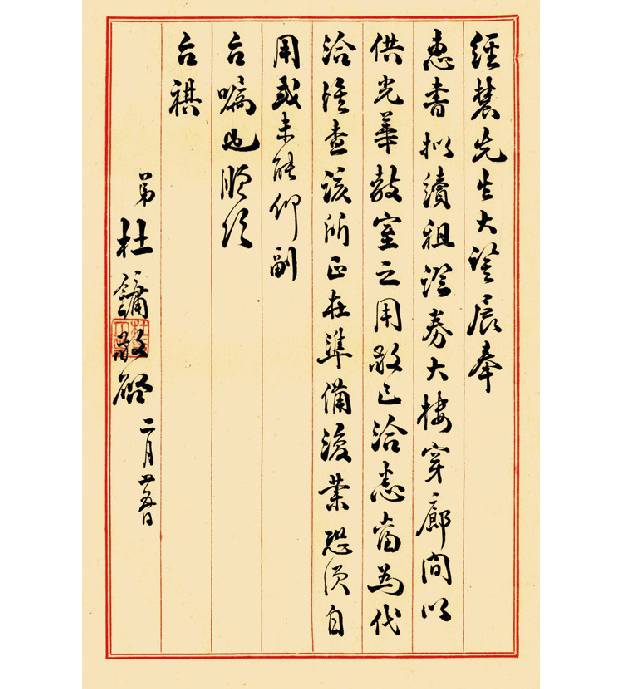 經農先生大鑒展奉
惠書擬續租證券大樓穿廊間以
供光華教室之用敬已洽悉當為代
洽惟查該所正在準備復業恐須自
用或未能仰副
台囑也順頌
台祺
弟杜鏞敬啓 二月廿五日